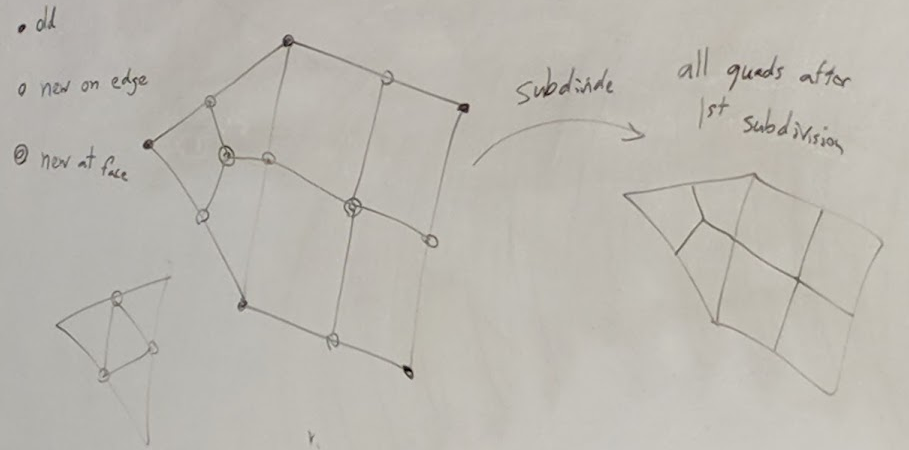 old
new on edge
new at face
subdivide
all quads after
1st subdivision